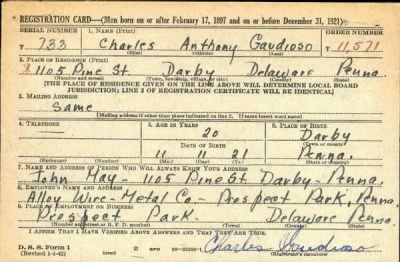 REGISTRATION CARD—(Men born on or after February 17, 1897 and on or before December 31, 1921)
SERIAL NUMBER 1. NAME (Print) ORDER NUMBER
T 733 Charles Anthony Gaudioso T 11,571
2. PLACE OF RESIDENCE (Print)
1105 Pine St. Darby Delaware Penna.
(Number and street) (Town, township, village, or city) (County) (State)
[THE PLACE OF RESIDENCE GIVEN ON THE LINE ABOVE WILL DETERMINE LOCAL BOARD
JURISDICTION; LINE 2 OF REGISTRATION CERTIFICATE WILL BE IDENTICAL]
3. MAILING ADDRESS
Same
[Mailing address if other than place indicated on line 2. If same insert word same]
4. TELEPHONE 5. AGE IN YEARS 6. PLACE OF BIRTH
20 Darby
DATE OF BIRTH (Town or county)
11 11 21 Penna.
(Exchange) (Number) (Mo.) (Day) (Yr.) (State or country)
7. NAME AND ADDRESS OF PERSON WHO WILL ALWAYS KNOW YOUR ADDRESS
John May - 1105 Pine St. Darby - Penna.
8. EMPLOYER'S NAME AND ADDRESS
Alloy Wire - Metal Co - Prospect Park, Penna.
9. PLACE OF EMPLOYMENT OR BUSINESS
Prospect Park. Delaware Penna
(Number and street or R. F. D. number) (Town) (County) (State)
I AFFIRM THAT I HAVE VERIFIED ABOVE ANSWERS AND THAT THEY ARE TRUE.
D. S. S. Form 1
(Revised 1-1-42) (over) Charles Gaudioso